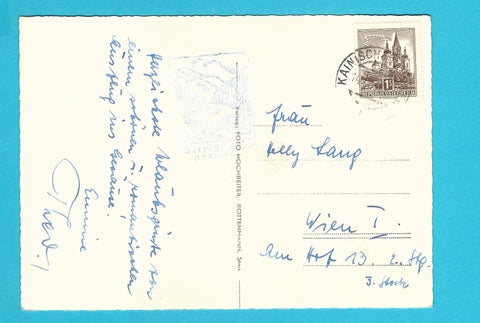 herzlichste Urlaubsgrüße von
einem schönen u. romantischen
Ausflug ins Gesäuse.
Emmie
Theo.
Verlag: FOTO HOCHREITER, ROTTENMANN, Stmk.
KAINISCH
REPUBLIK ÖSTERREICH
Frau
Nelly Lang
Wien I.
Am Hof 13. 2. Stg.
3. Stock